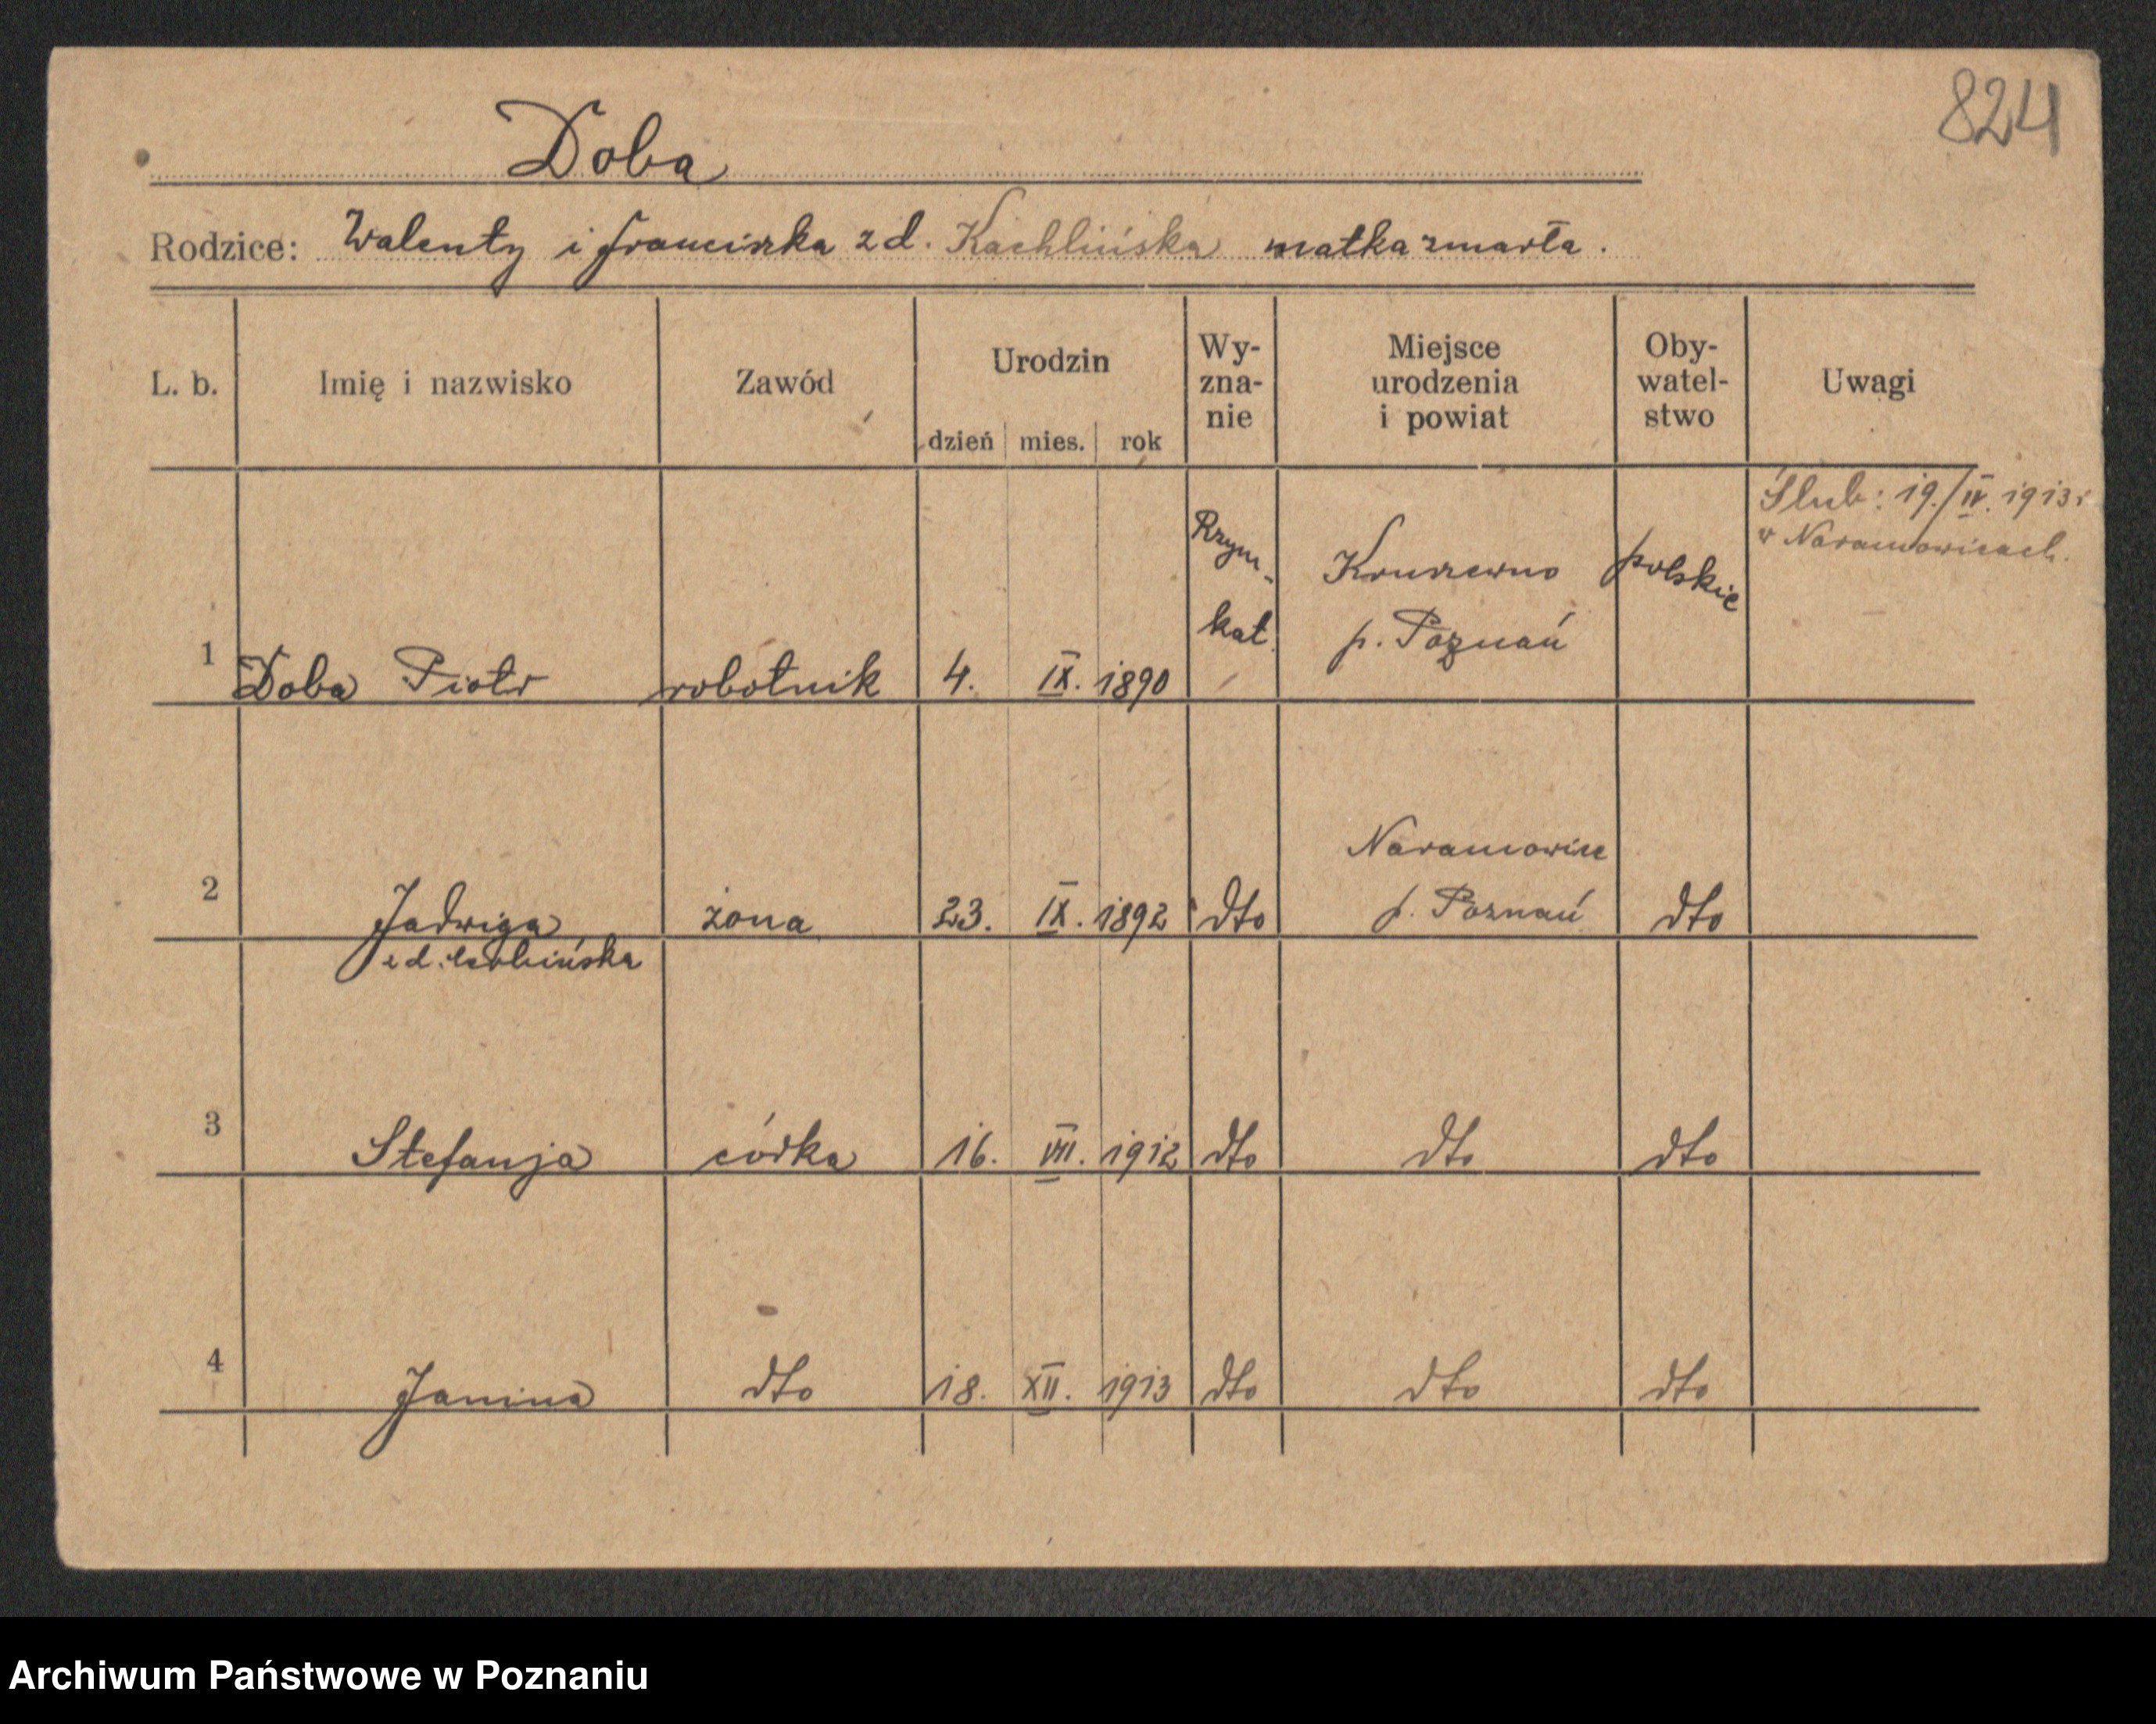 824
Doba
Rodzice: Walenty i Franciszka z d. Kachlińska matka zmarła.
L. b. Imię i nazwisko Zawód Urodzin dzień mies. rok Wy-zna-nie Miejsce urodzenia i powiat Oby-watel-stwo Uwagi
Ślub: 19./IV. 1913 r
w Naramowicach.
1 Doba Piotr robotnik 4. IX. 1890 Rzym.-kat. Kruszewno p. Poznań polskie
2 Jadwiga żona 23. IX. 1892 dto Naramowice p. Poznań dto
z d.
3 Stefanja córka 16. VII. 1912 dto dto dto
4 Janina dto 18. XII. 1913 dto dto dto
Archiwum Państwowe w Poznaniu